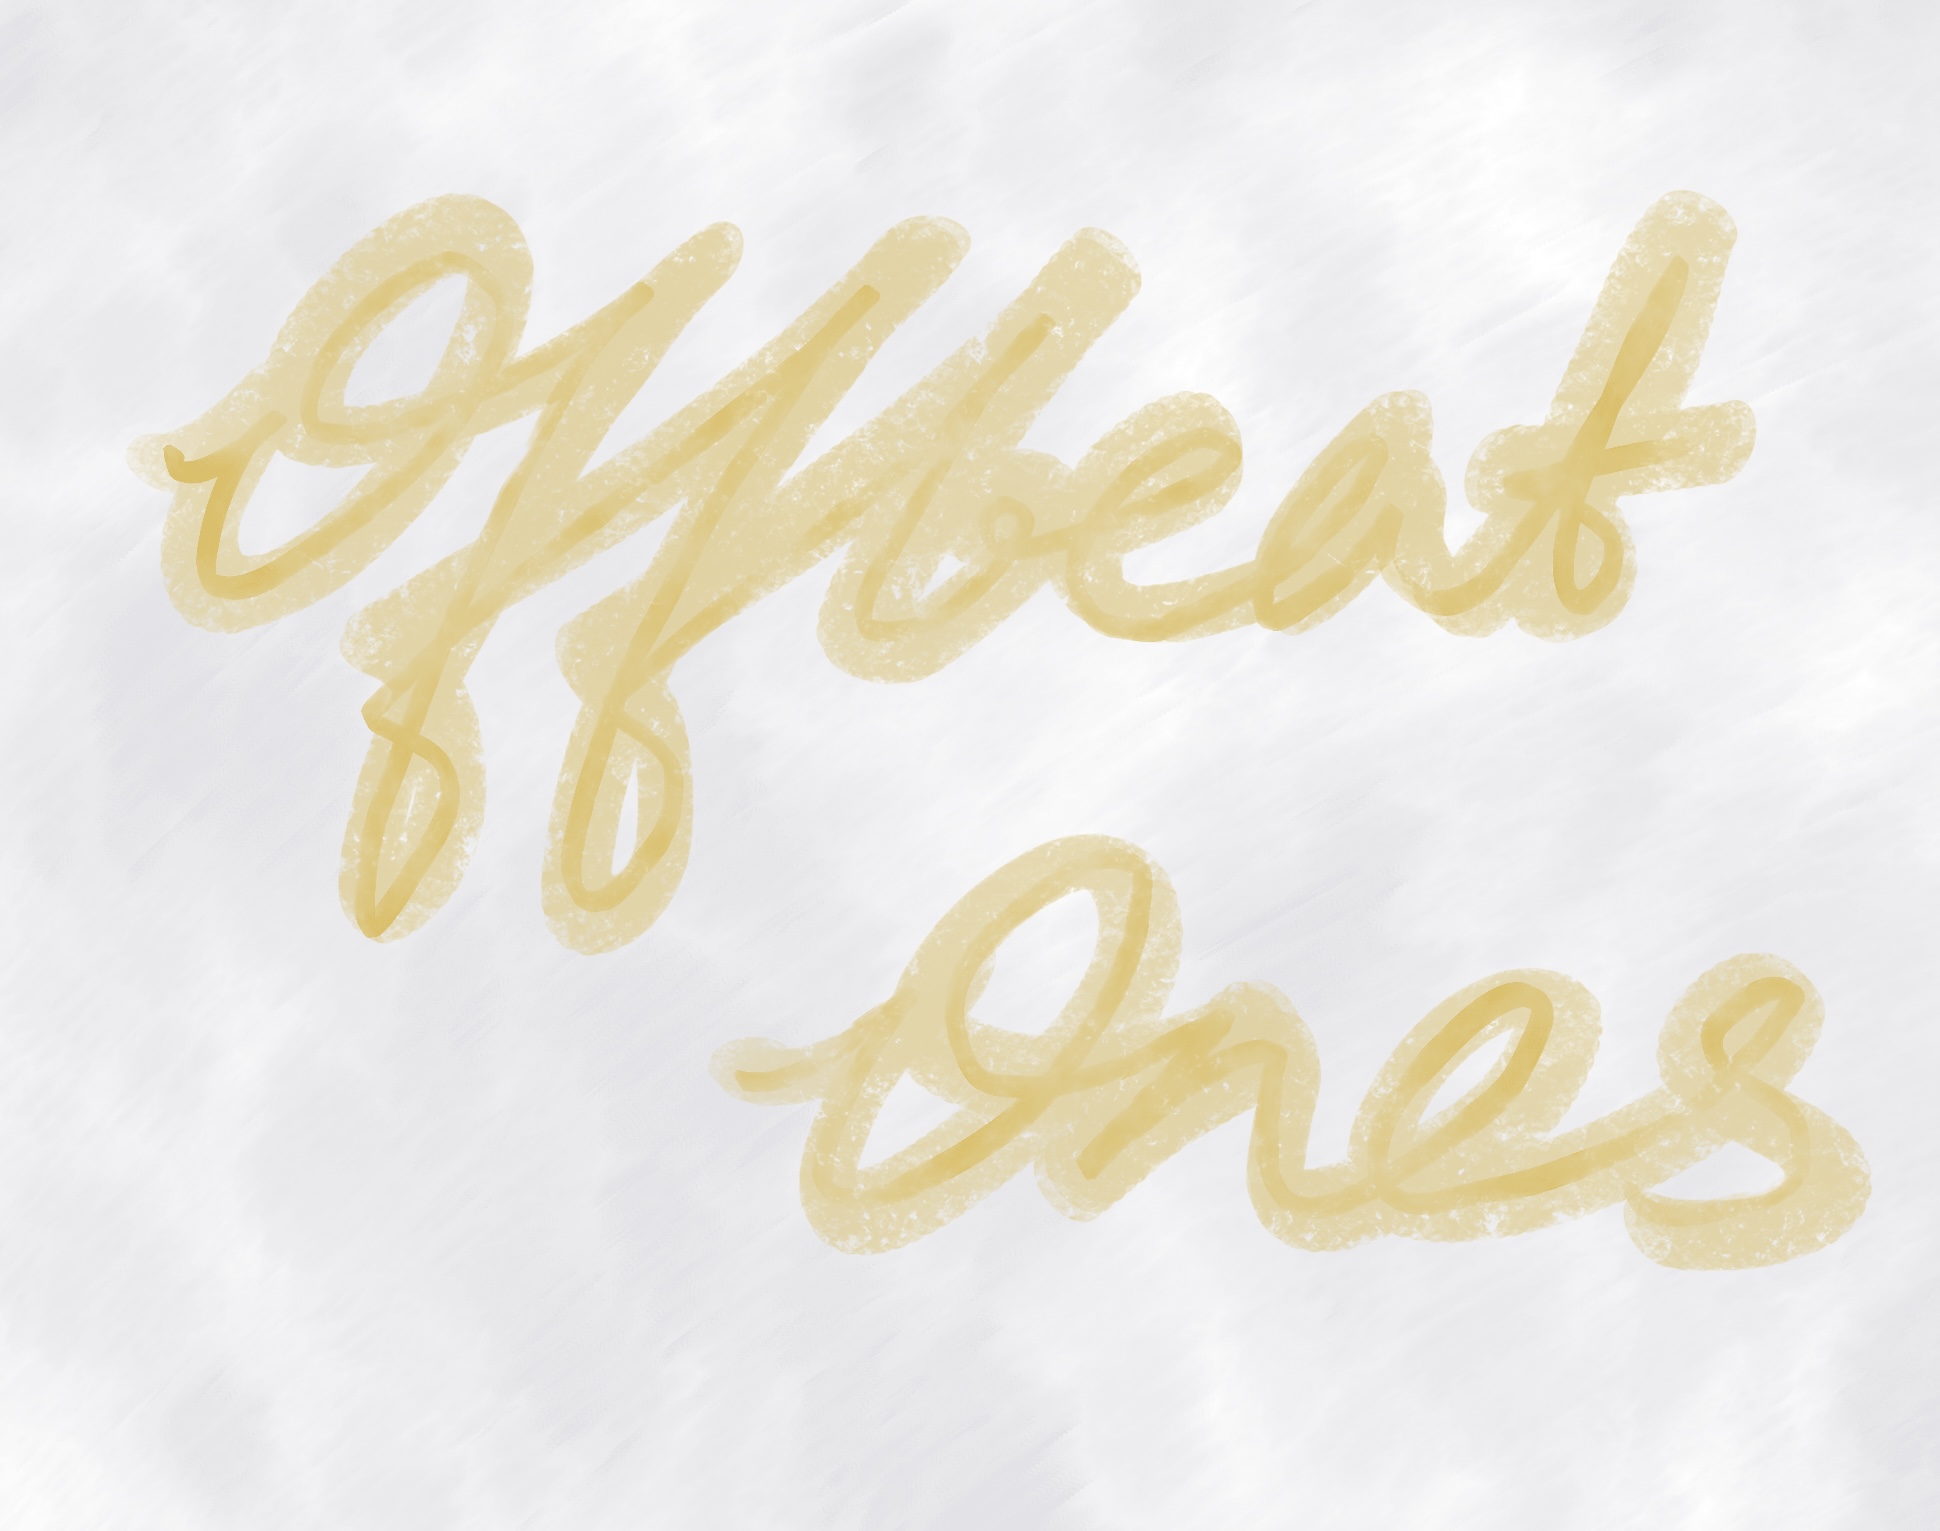 Offbeat
Ones